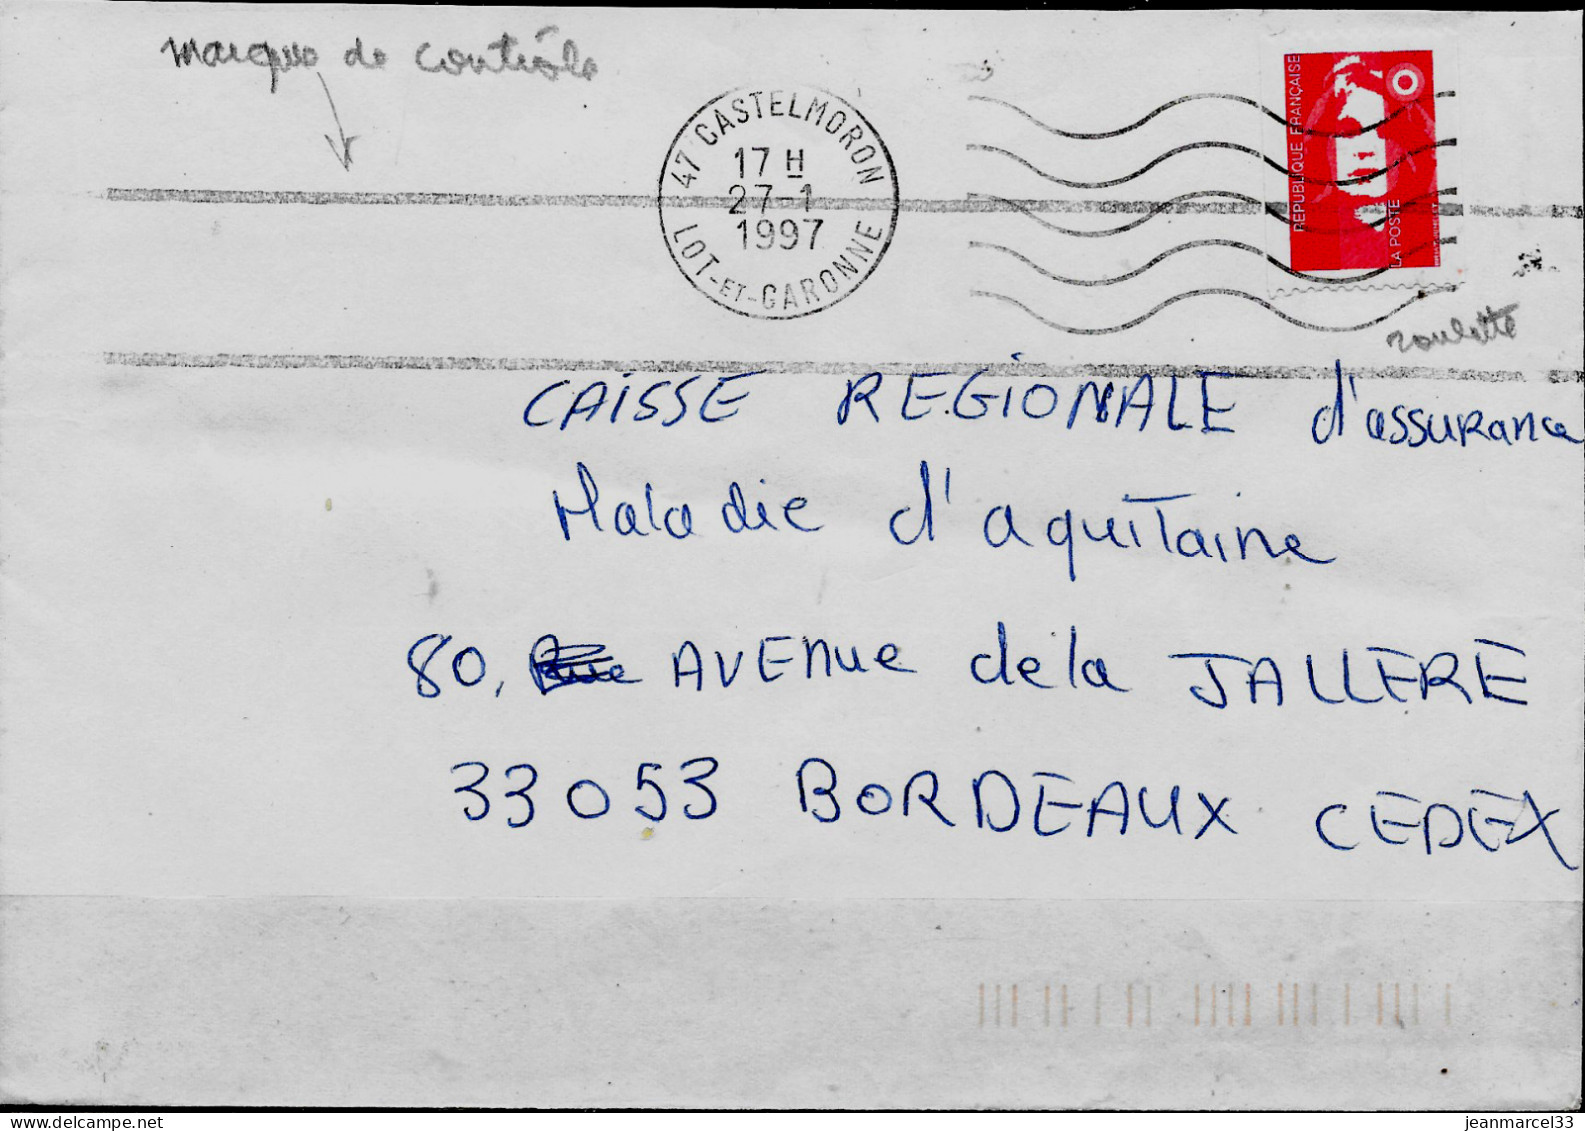 marque de contrôle
47 CASTELMORON
17 H
27-1
1997
LOT-ET-GARONNE
REPUBLIQUE FRANÇAISE
LA POSTE
roulette
CAISSE REGIONALE d'assurance
Maladie d'aquitaine
80, AVEnue de la JALLERE
33053 BORDEAUX CEDEX
jeanmarcel33